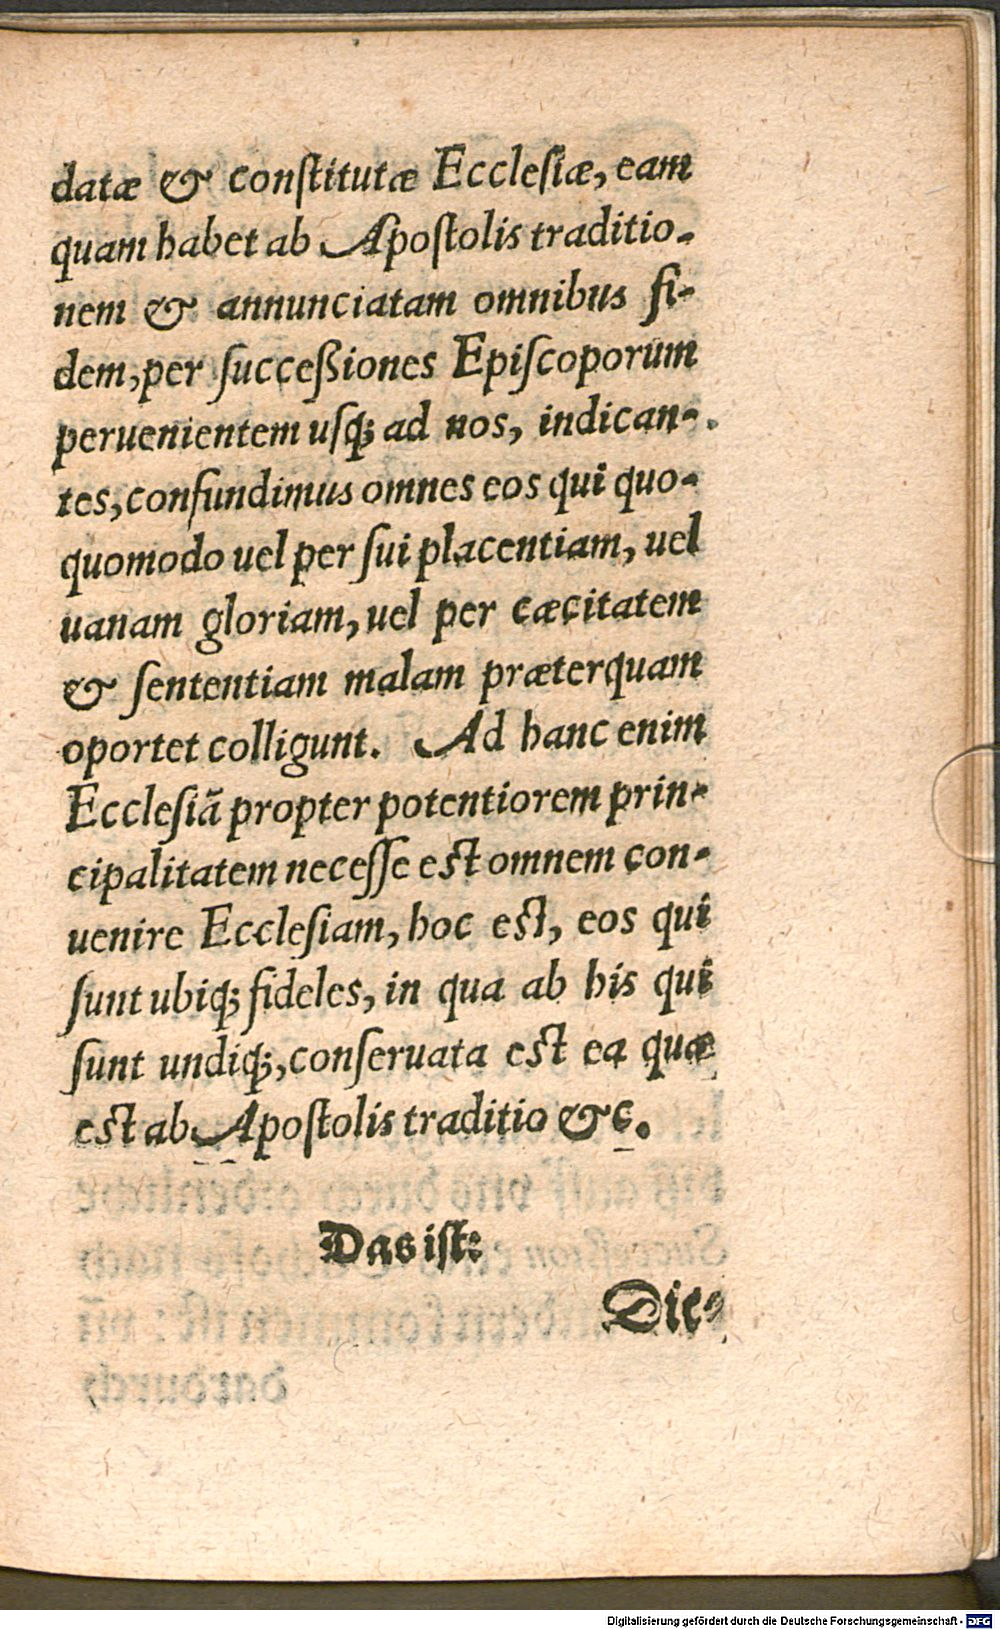 datæ & conſtitutæ Eccleſiæ, eam
quam habet ab Apoſtolis traditio-
nem & annunciatam omnibus fi-
dem, per ſucceßiones Epiſcoporum
peruenientem uſq; ad nos, indican-
tes, confundimus omnes eos qui quo-
quomodo uel per ſui placentiam, uel
uanam gloriam, uel per cæcitatem
& ſententiam malam præterquam
oportet colligunt. Ad hanc enim
Eccleſiā propter potentiorem prin-
cipalitatem neceſſe eſt omnem con-
uenire Eccleſiam, hoc eſt, eos qui
ſunt ubiq; fideles, in qua ab his qui
ſunt undiq;, conſeruata eſt ea quæ
eſt ab Apoſtolis traditio &c.
Das iſt:
Die-
Digitalisierung gefördert durch die Deutsche Forschungsgemeinschaft - DFG